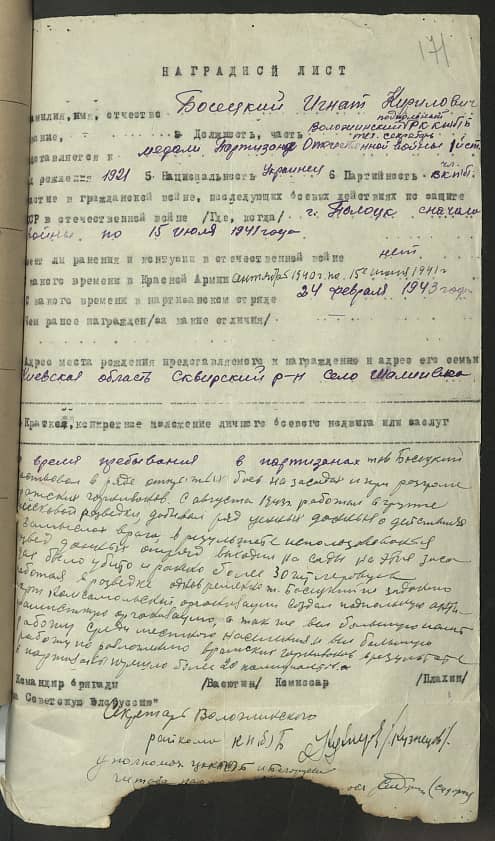 171
НАГРАДНОЙ ЛИСТ
амилия, имя, отчество Босецкий Игнат Кирилович
вание, Должность, часть подпольный Воложинский РК КП(б)Б тех. секретарь
едставляется к медали Партизану Отечественной войны I ст.
д рождения 1921 5 Национальность Украинец 6 Партийность чл. ВКП(б).
частие в гражданской войне, последующих боевых действиях по защите
СР в отечественной войне /Где, когда/ г. Полоцк с начала
войны по 15 июля 1941 года
меет ли ранения и контузии в отечественной войне нет
какого времени в Красной Армии 1940 г. по 15 июля 1941 г.
С какого времени в партизанском отряде 24 февраля 1943 года
Чем ранее награжден/за какие отличия/ —
Адрес места рождения представляемого к награждению и адрес его семьи
Киевская область Сквирский р-н село
Краткое, конкретное изложение личного боевого подвига или заслуг
время пребывания в партизанах тов Босецкий
участвовал в ряде открытых боев на засадах и при разгроме
вражеских гарнизонов. С августа 1943 г. работал в группе
войсковой разведки, добывал ряд ценных данных о действиях
замыслах врага, в результате использования
развед данных отряд выходил на засады на этих заса
дах было убито и ранено более 30 гитлеровцев
Работая в разведке одновременно т. Босецкий по заданию
комсомольской организации создал подпольную анти
фашистскую организацию, а так же вел большую
работу среди местного населения и вел большую
работу по разложению вражеских гарнизонов в результате
в партизаны пришло более 20
Командир бригады /Васютин/ Комиссар /Плахин/
а Советскую Белоруссию"
Секретарь Воложинского
райкома КП(б)Б /Кузнецов/.
уполномоч ЦК КП(б)Б и Белорусск